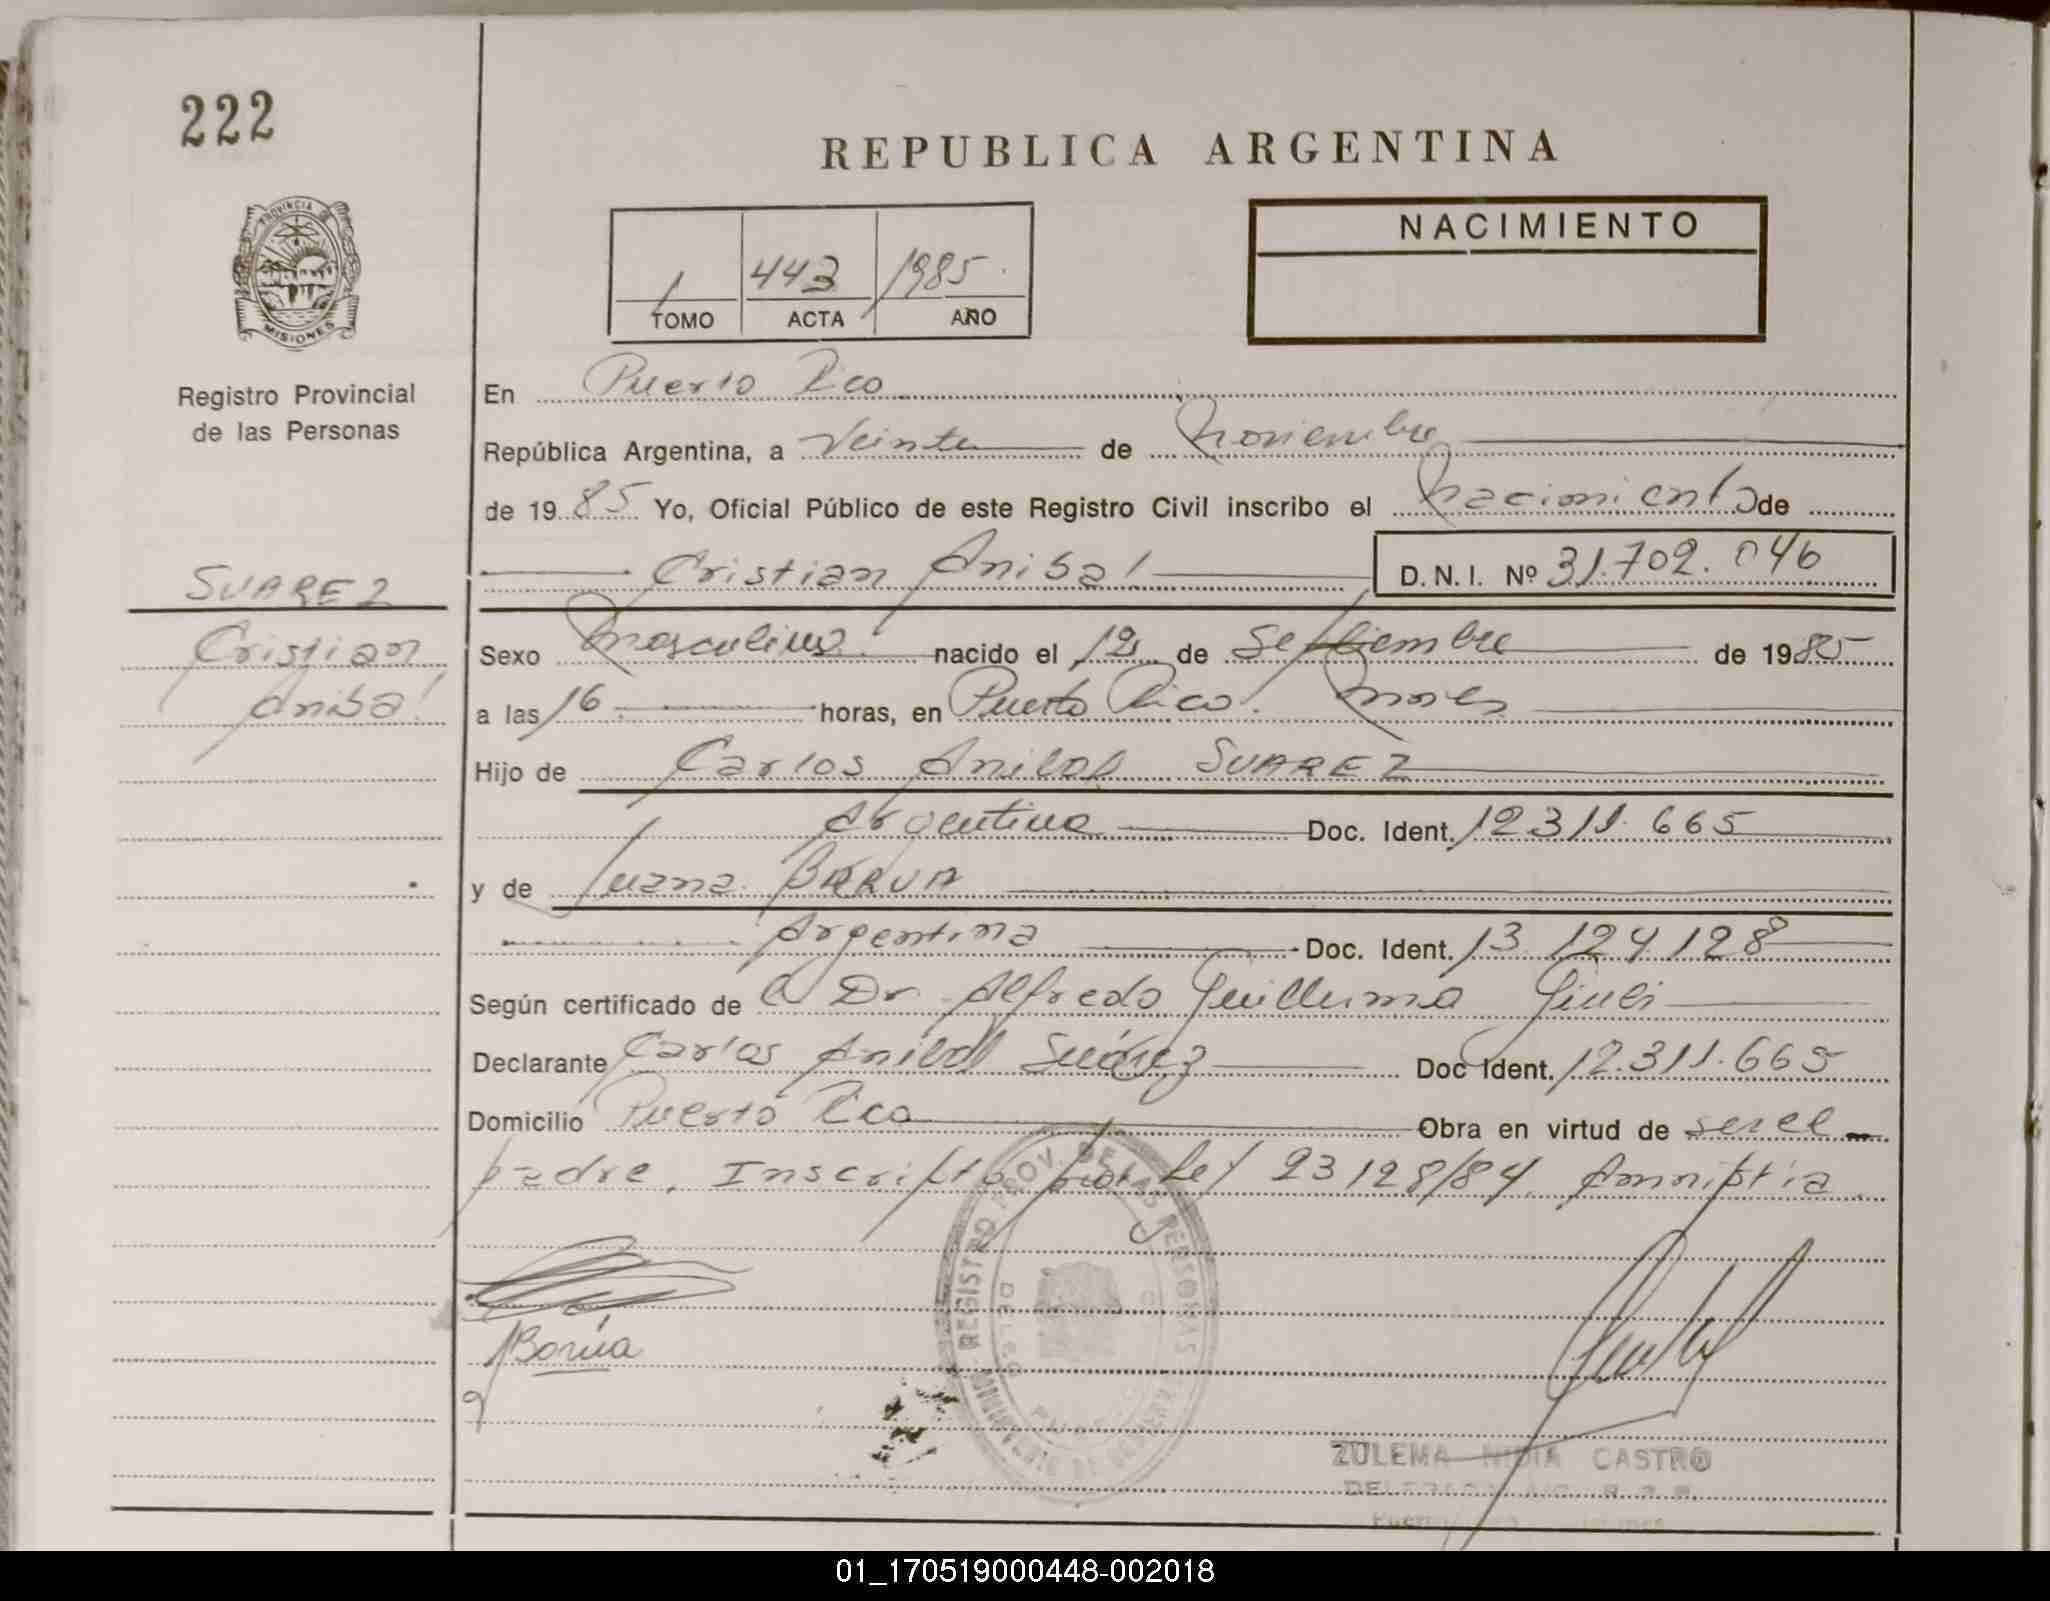 222
REPUBLICA ARGENTINA
PROVINCIA DE
MISIONES
NACIMIENTO
1 443 1985
TOMO ACTA AÑO
Registro Provincial
de las Personas
En Puerto Rico
República Argentina, a Veinte de Noviembre
de 1985 Yo, Oficial Público de este Registro Civil inscribo el Nacimiento de
Cristian Anibal D.N.I. Nº 31.702.046
SUAREZ
Cristian
Anibal
Sexo Masculino nacido el de Septiembre de 1985
a las 16 horas, en Puerto Rico. Mnes
Hijo de Carlos Anibal SUAREZ
Argentino Doc. Ident. 12311.665
y de Juana BARUA
Argentina Doc. Ident. 13.124.128
Según certificado de Dr. Alfredo Guillermo
Declarante Carlos Anibal Suárez Doc Ident. 12.311.665
Domicilio Puerto Rico Obra en virtud de ser el
padre. Inscripto por Ley 23128/84 Amnistia
REGISTRO PROV. DE LAS PERSONAS
Barúa
ZULEMA NIDIA CASTRO